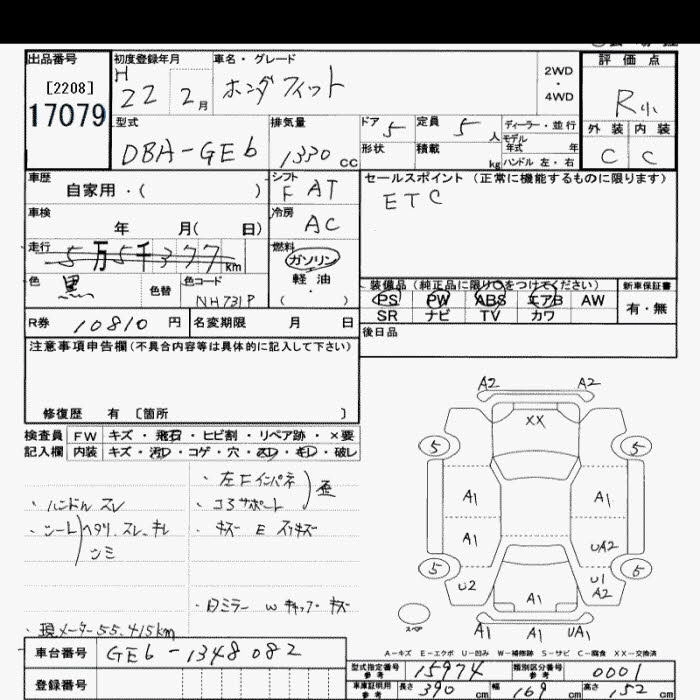 出品番号
[2208]
17079
初度登録年月
H 22 2月
車名・グレード
ホンダフィット
2WD
・
4WD
評価点
R小
外装 内装
C C
型式
DBA-GE6
排気量
1330 cc
ドア 5
定員 5人
ディーラー・並行
モデル年式 年
形状
積載 kg
ハンドル 左・右
車歴
自家用・( )
シフト
F AT
セールスポイント (正常に機能するものに限ります)
ETC
車検
年 月( 日)
冷房
AC
走行
5万5千377km
燃料
ガソリン
軽油
・
( )
色
黒
色替
色コード
NH731P
装備品 (純正品に限り○をつけてください)
PS PW ABS エアB AW
SR ナビ TV カワ
新車保証書
有・無
R券 10810 円
名変期限 月 日
後日品
注意事項申告欄(不具合内容等は具体的に記入して下さい)
修復歴 有 〔箇所 〕
検査員 FW キズ・飛石・ヒビ割・リペア跡・×要
記入欄 内装 キズ・汚D・コゲ・穴・・破レ
・左Fインパネ
・コアサポート
歪
・ハンドル スレ
・シートヘタリ、スレ、キレ
シミ
・キズ E スリキズ
・日ミラー W キャップ・キズ
・現メーター 55,415km
A2 A2
XX
5 5
A1 A1
A1 UA2
5 5
U2 A1 U1
A2
スペア
A1 A1 UA1
A-キズ E-エクボ U-凹み W-補修跡 S-サビ C-腐食 XX-交換済
車台番号 GE6-1348082
登録番号
型式指定番号 参考 15974
類別区分番号 参考 0001
車庫証明用 参考 長さ 390 cm 幅 169 cm 高さ 152 cm